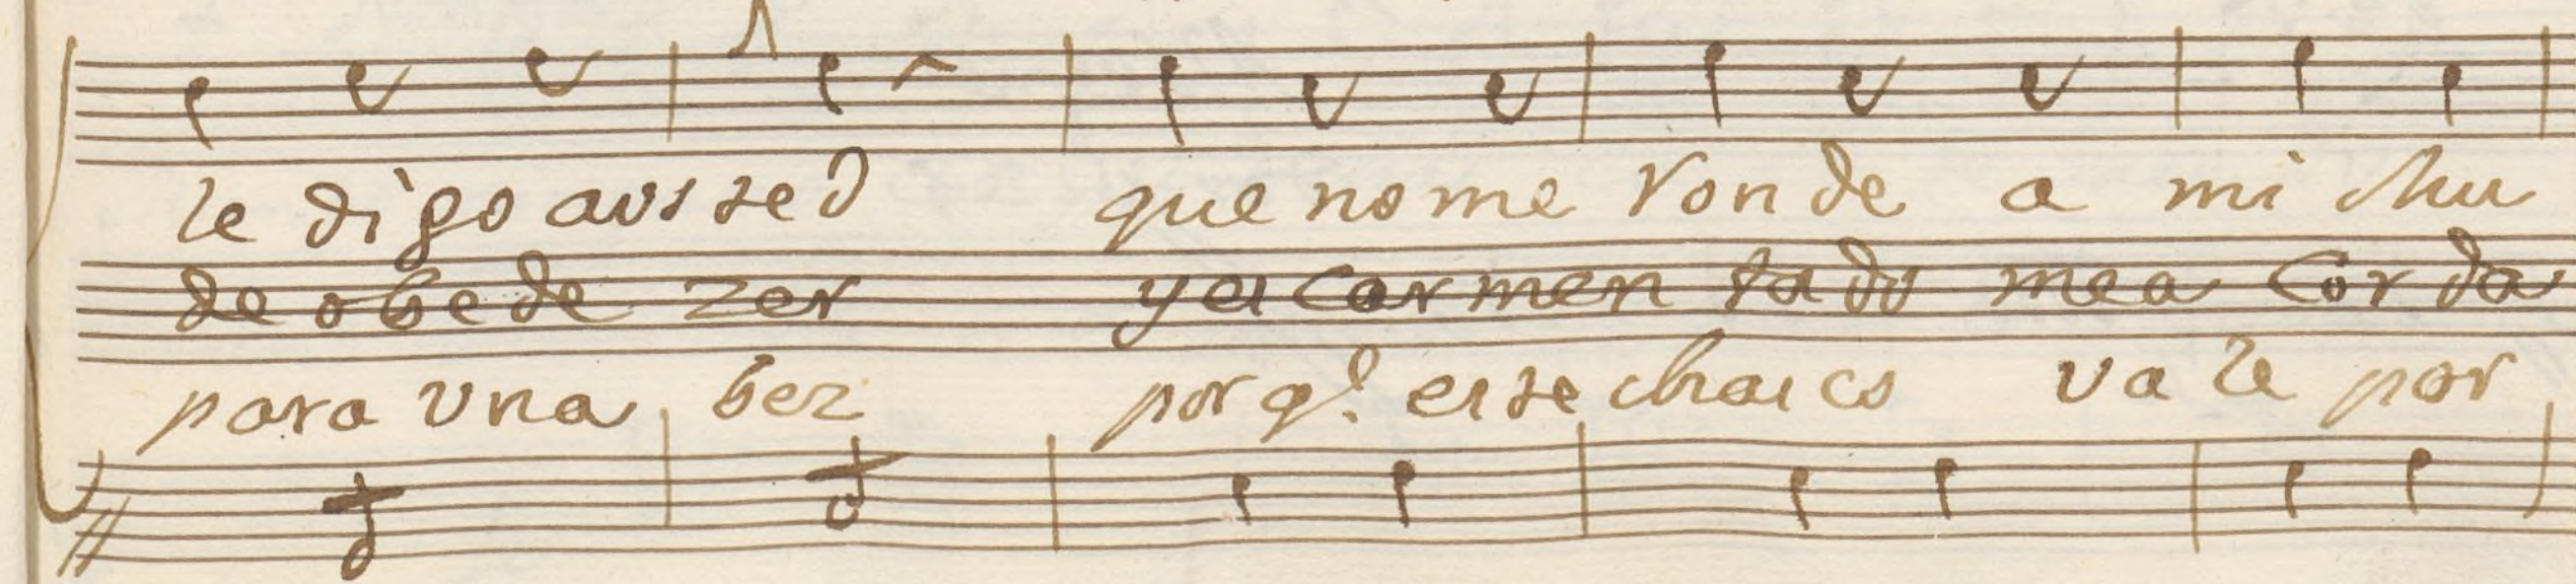 le digo aussted que no me Ronde a mi chu
de obedezer y escarmentado me acorda
para una bez porq.e este chasco vale por